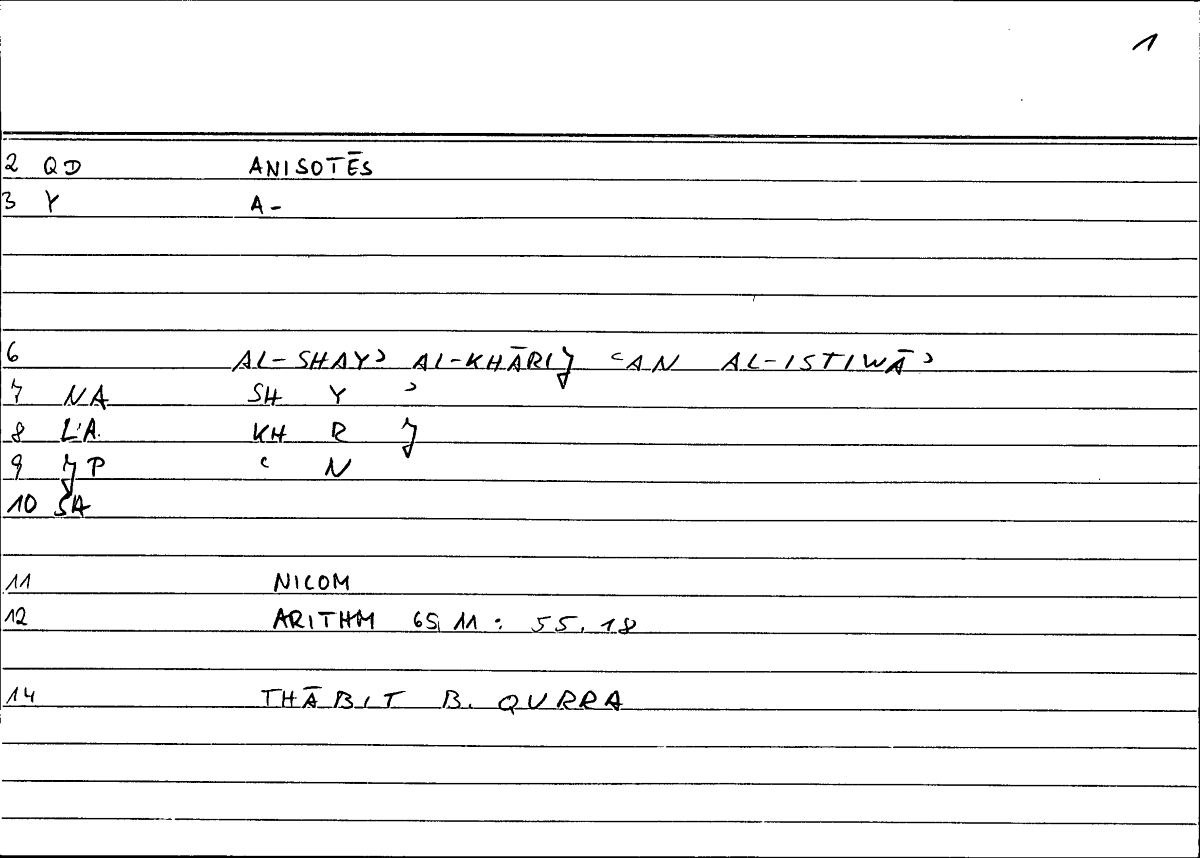 1
2 QD ANISOTĒS
3 Y A-
6 AL-SHAYʾ AL-KHĀRIJ ʿAN AL-ISTIWĀʾ
7 NA SH Y ʾ
8 L'A. KH R J
9 JP ʿ N
10 SA
11 NICOM
12 ARITHM 65,11 : 55.18
14 THĀBIT B. QURRA